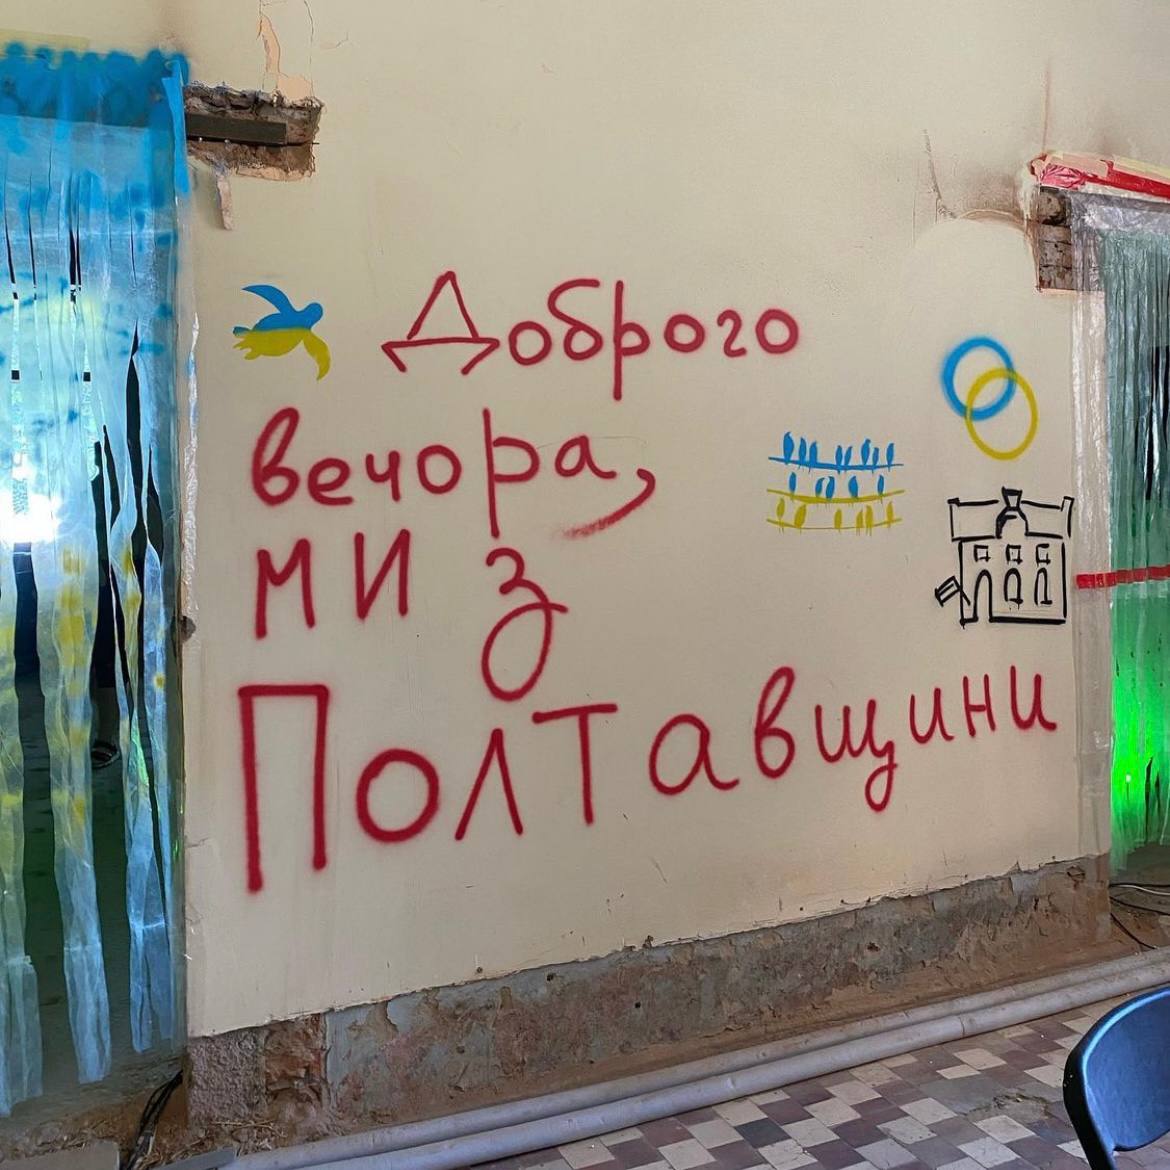 Доброго
вечора,
ми з
Полтавщини